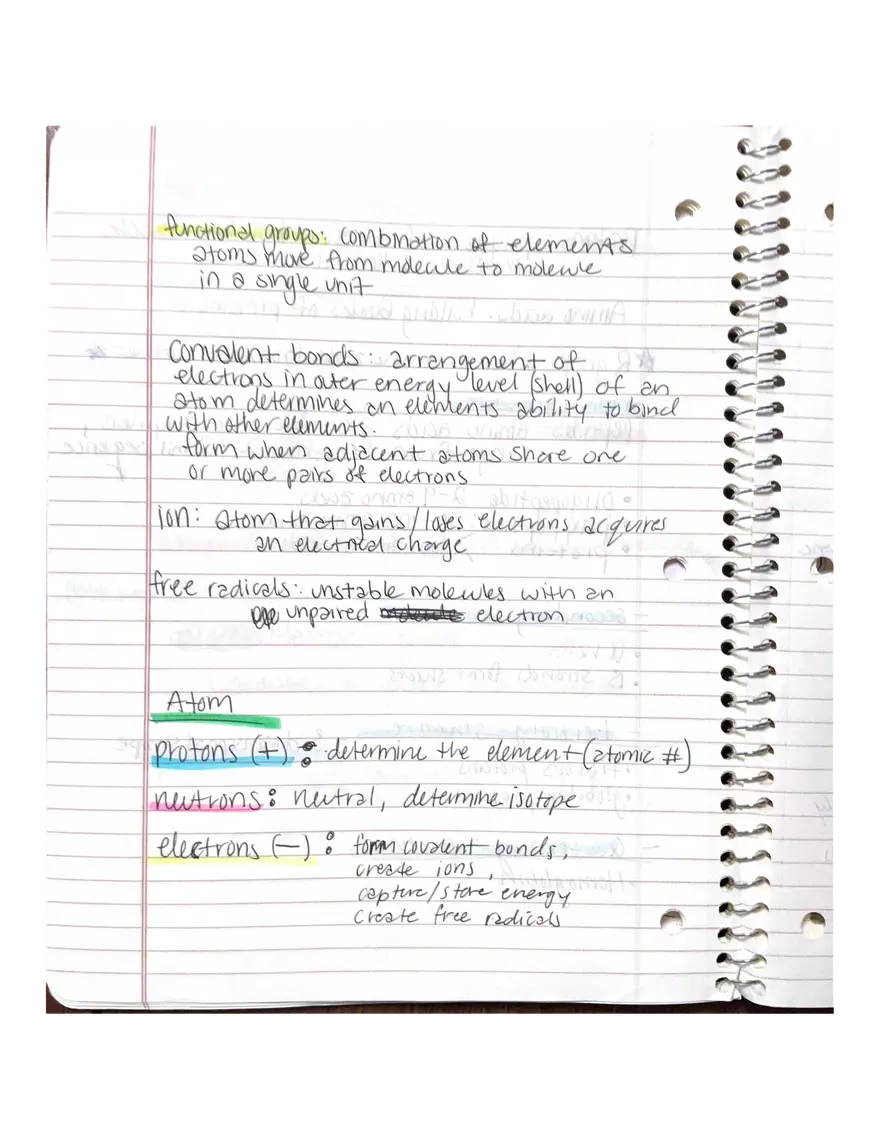 functional groups: combination of elements
atoms move from molecule to molecule
in a single unit
Convalent bonds: arrangement of
electrons in outer energy level (shell) of an
atom determines an elements ability to bind
with other elements.
form when adjacent atoms share one
or more pairs of electrons
ion: atom that gains/loses electrons acquires
an electrical charge
free radicals: unstable molecules with an
unpaired electron
Atom
protons (+): determine the element (atomic #)
neutrons: neutral, determine isotope
electrons (-): form covalent bonds,
create ions,
capture/store energy
create free radicals